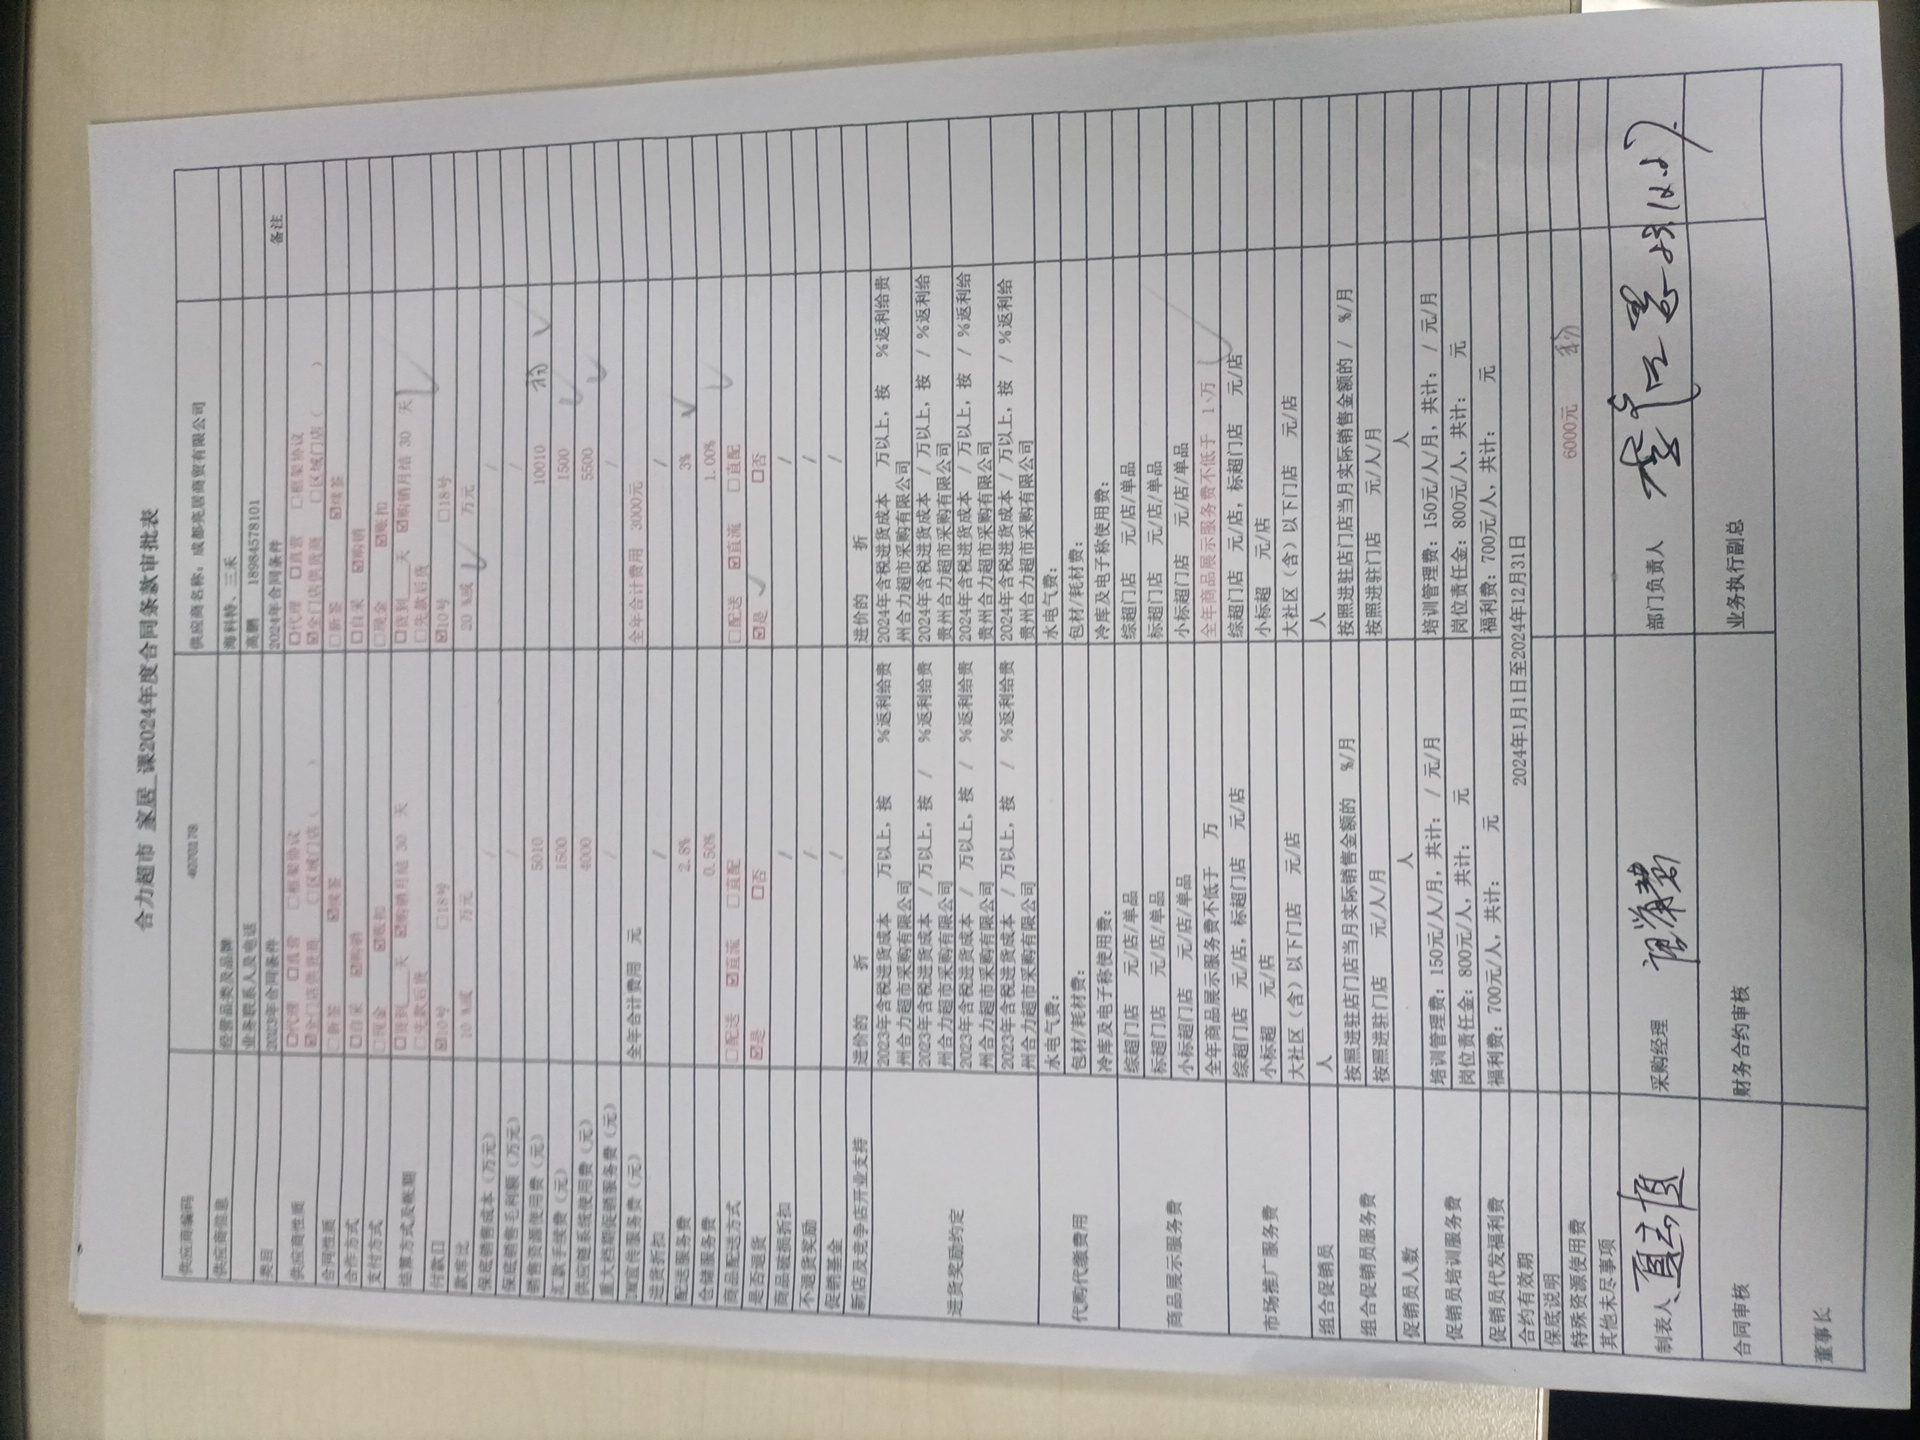 合力超市 家居 课2024年度合同条款审批表
供应商编码 4070178 供应商名称：成都亮居商贸有限公司
供应商信息 经营品类及品牌 海科特、三禾
业务联系人及电话 高鹏 18984578101
类目 2023年合同条件 2024年合同条件 备注
供应商性质 □代理 □直营 □框架协议 □代理 □直营 □框架协议
☑全门店供货商 □区域门店（ ） ☑全门店供货商 □区域门店（ ）
合同性质 □新签 ☑续签 □新签 ☑续签
合作方式 □自采 ☑购销 □自采 ☑购销
支付方式 □现金 ☑账扣 □现金 ☑账扣
结算方式及账期 □货到 天 ☑购销月结 30 天 □货到 天 ☑购销月结 30 天
□先款后货 □先款后货
付款日 ☑10号 □18号 ☑10号 □18号
款库比 10 %或 万元 20 %或 万元
保底销售成本（万元） / /
保底销售毛利额（万元） / /
销售资源使用费（元） 5010 10010
汇款手续费（元） 1500 1500
供应链系统使用费（元） 4000 5500
重大档期促销服务费（元） / /
DM宣传服务费（元） 全年合计费用 元 全年合计费用 3000元
进货折扣 / /
配送服务费 2.8% 3%
仓储服务费 0.50% 1.00%
商品配送方式 □配送 ☑直流 □直配 □配送 ☑直流 □直配
是否退货 ☑是 □否 ☑是 □否
商品破损折扣 / /
不退货奖励 / /
促销基金 / /
新店及竞争店开业支持 进价的 折 进价的 折
进货奖励约定
2023年含税进货成本 万以上，按 %返利给贵州合力超市采购有限公司 2024年含税进货成本 万以上，按 %返利给贵州合力超市采购有限公司
2023年含税进货成本 / 万以上，按 / %返利给贵州合力超市采购有限公司 2024年含税进货成本 / 万以上，按 / %返利给贵州合力超市采购有限公司
2023年含税进货成本 / 万以上，按 / %返利给贵州合力超市采购有限公司 2024年含税进货成本 / 万以上，按 / %返利给贵州合力超市采购有限公司
2023年含税进货成本 / 万以上，按 / %返利给贵州合力超市采购有限公司 2024年含税进货成本 / 万以上，按 / %返利给贵州合力超市采购有限公司
代购代缴费用 水电气费： 水电气费：
包材/耗材费： 包材/耗材费：
冷库及电子称使用费： 冷库及电子称使用费：
商品展示服务费 综超门店 元/店/单品 综超门店 元/店/单品
标超门店 元/店/单品 标超门店 元/店/单品
小标超门店 元/店/单品 小标超门店 元/店/单品
全年商品展示服务费不低于 万 全年商品展示服务费不低于 1 万
市场推广服务费 综超门店 元/店，标超门店 元/店 综超门店 元/店，标超门店 元/店
小标超 元/店 小标超 元/店
大社区（含）以下门店 元/店 大社区（含）以下门店 元/店
组合促销员 人 人
组合促销员服务费 按照进驻店门店当月实际销售金额的 %/月 按照进驻店门店当月实际销售金额的 / %/月
按照进驻门店 元/人/月 按照进驻门店 元/人/月
促销员人数 人 人
促销员培训服务费 培训管理费：150元/人/月，共计： / 元/月 培训管理费：150元/人/月，共计： / 元/月
岗位责任金：800元/人，共计： 元 岗位责任金：800元/人，共计： 元
促销员代发福利费 福利费：700元/人，共计： 元 福利费：700元/人，共计： 元
合约有效期 2024年1月1日至2024年12月31日
保底说明
特殊资源使用费 6000元
其他未尽事项
制表人 采购经理 部门负责人
合同审核 财务合约审核 业务执行副总
董事长